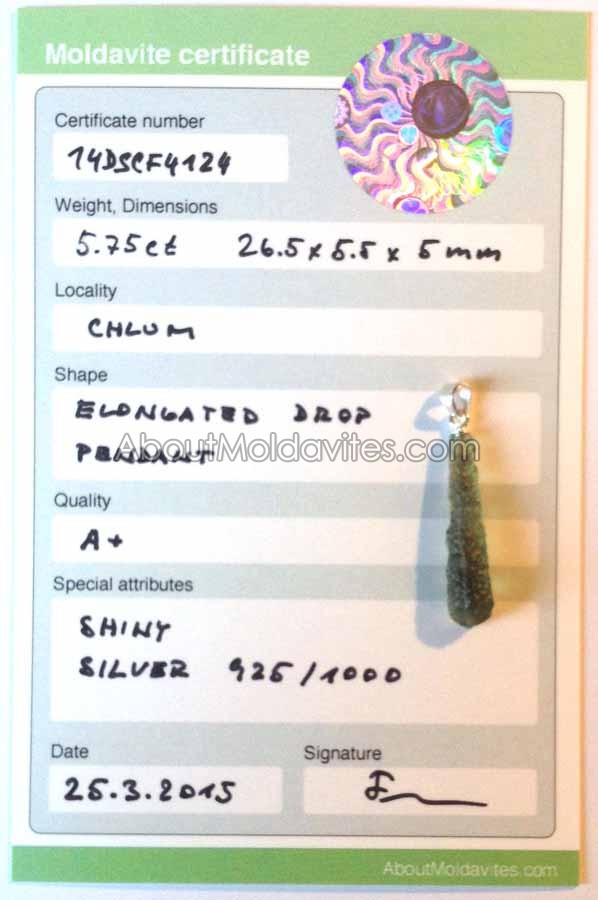 Moldavite certificate
Certificate number
14DSCF4124
Weight, Dimensions
5.75ct 26.5 x 5.5 x 5 mm
Locality
CHLUM
Shape
ELONGATED DROP
PENDANT
AboutMoldavites.com
Quality
A+
Special attributes
SHINY
SILVER 925/1000
Date Signature
25.3.2015
AboutMoldavites.com